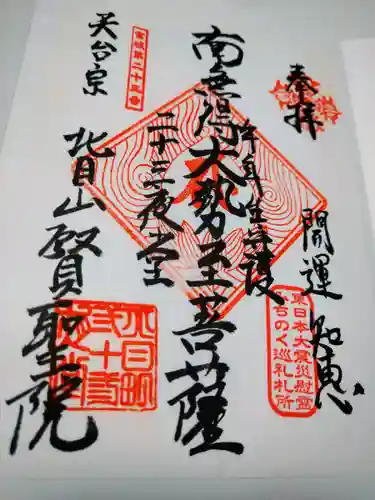 奉拝
開運 知恵
東日本大震災慰霊
みちのく巡礼札所
午年生守護
南無得大勢至菩薩
二十三夜堂
宮城第二十三番
天台宗
賢聖院